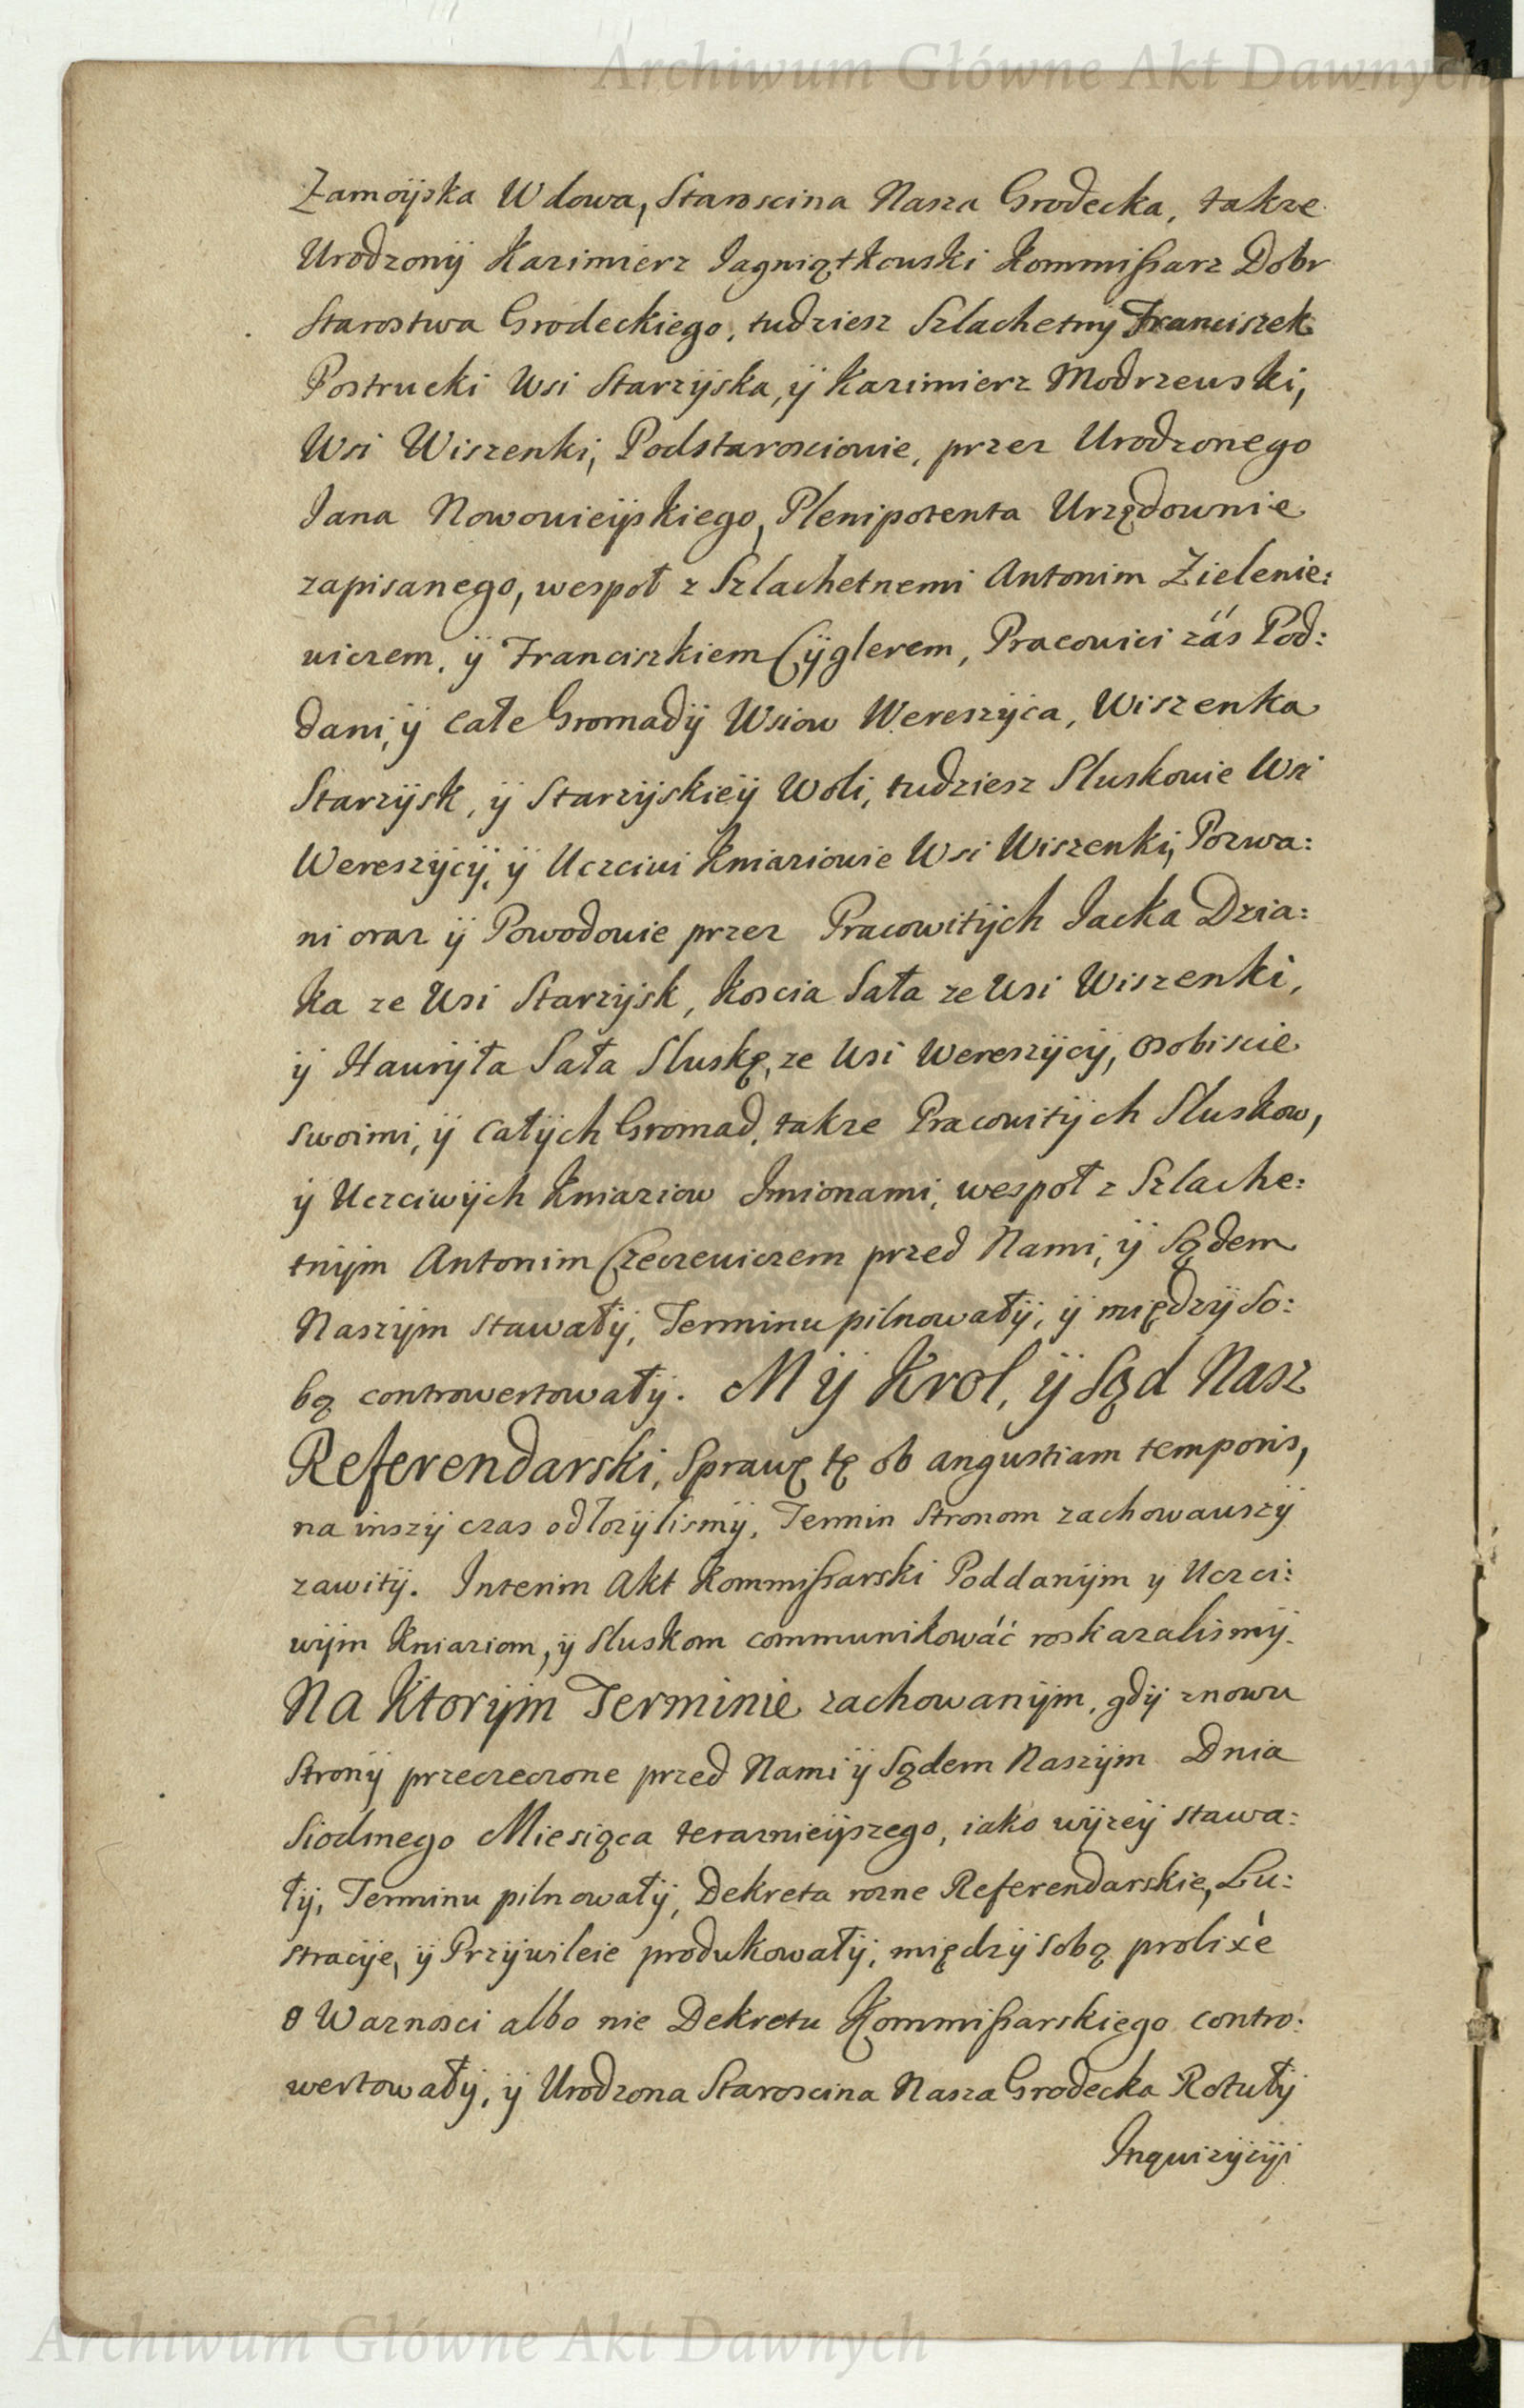 Archiwum Główne Akt Dawnych
Zamoÿska Wdowa, Staroscina Nasza Grodecka, takze
Urodzonÿ Kazimierz Jagniątkowski Kommissarz Dobr
Starostwa Grodeckiego, tudziesz Szlachetny Franciszek
Postrucki Wsi Starzÿska, ÿ Kazimierz Modrzewski,
Wsi Wiszenki, Podstarosciowie, przez Urodzonego
Jana Nowowieÿskiego, Plenipotenta Urzędownie
zapisanego, wespoł z Szlachetnemi Antonim Zielenie:
wiczem, ÿ Franciszkiem Cÿglerem, Pracowici zás Pod:
dani, ÿ całe Gromadÿ Wsiow Wereszÿca, Wiszenka
Starzÿsk, ÿ Starzÿskieÿ Woli, tudziesz Sluskowie Wsi
Wereszÿcÿ, ÿ Uczciwi Kniaziowie Wsi Wiszenki, Pozwa:
ni oraz ÿ Powodowie przez Pracowitÿch Jacka Dzia:
ka ze Wsi Starzÿsk, Koscia Sała ze Wsi Wiszenki,
ÿ Hawrÿła Sała Sluskę, ze Wsi Wereszÿcÿ, osobiscie
swoimi, ÿ całÿch Gromad, takze Pracowitÿch Sluskow,
ÿ Uczciwÿch Kniaziow Jmionami, wespoł z Szlache:
tnÿm Antonim Czeczewiczem przed Nami, ÿ Sądem
Naszÿm stawałÿ, Terminu pilnowałÿ, ÿ międzÿ So:
bą controwertowałÿ. MŸ Krol, ÿ Sąd Nasz
Referendarski, Sprawę tę ob angustiam temporis,
na inszÿ czas odłozÿlismÿ, Termin Stronom zachowawszÿ
zawitÿ. Interim Akt Kommissarski Poddanÿm y Uczci:
wÿm Kniaziom, ÿ Sluskom communikowáć roskazalismÿ.
Na Ktorÿm Terminie zachowanÿm, gdÿ znowu
Stronÿ przeczeczone przed Nami ÿ Sądem Naszÿm Dnia
Siodmego Miesiąca teraznieÿszego, iako wÿzeÿ stawa:
łÿ, Terminu pilnowałÿ, Dekreta rozne Referendarskie, Lu:
stracÿe, ÿ Przÿwileie produkowałÿ, międzÿ sobą prolixè
o Waznosci albo nie Dekretu Kommissarskiego contro:
wertowałÿ, ÿ Urodzona Staroscina Nasza Grodecka Rotułÿ
Inquizÿcÿi
Archiwum Główne Akt Dawnych